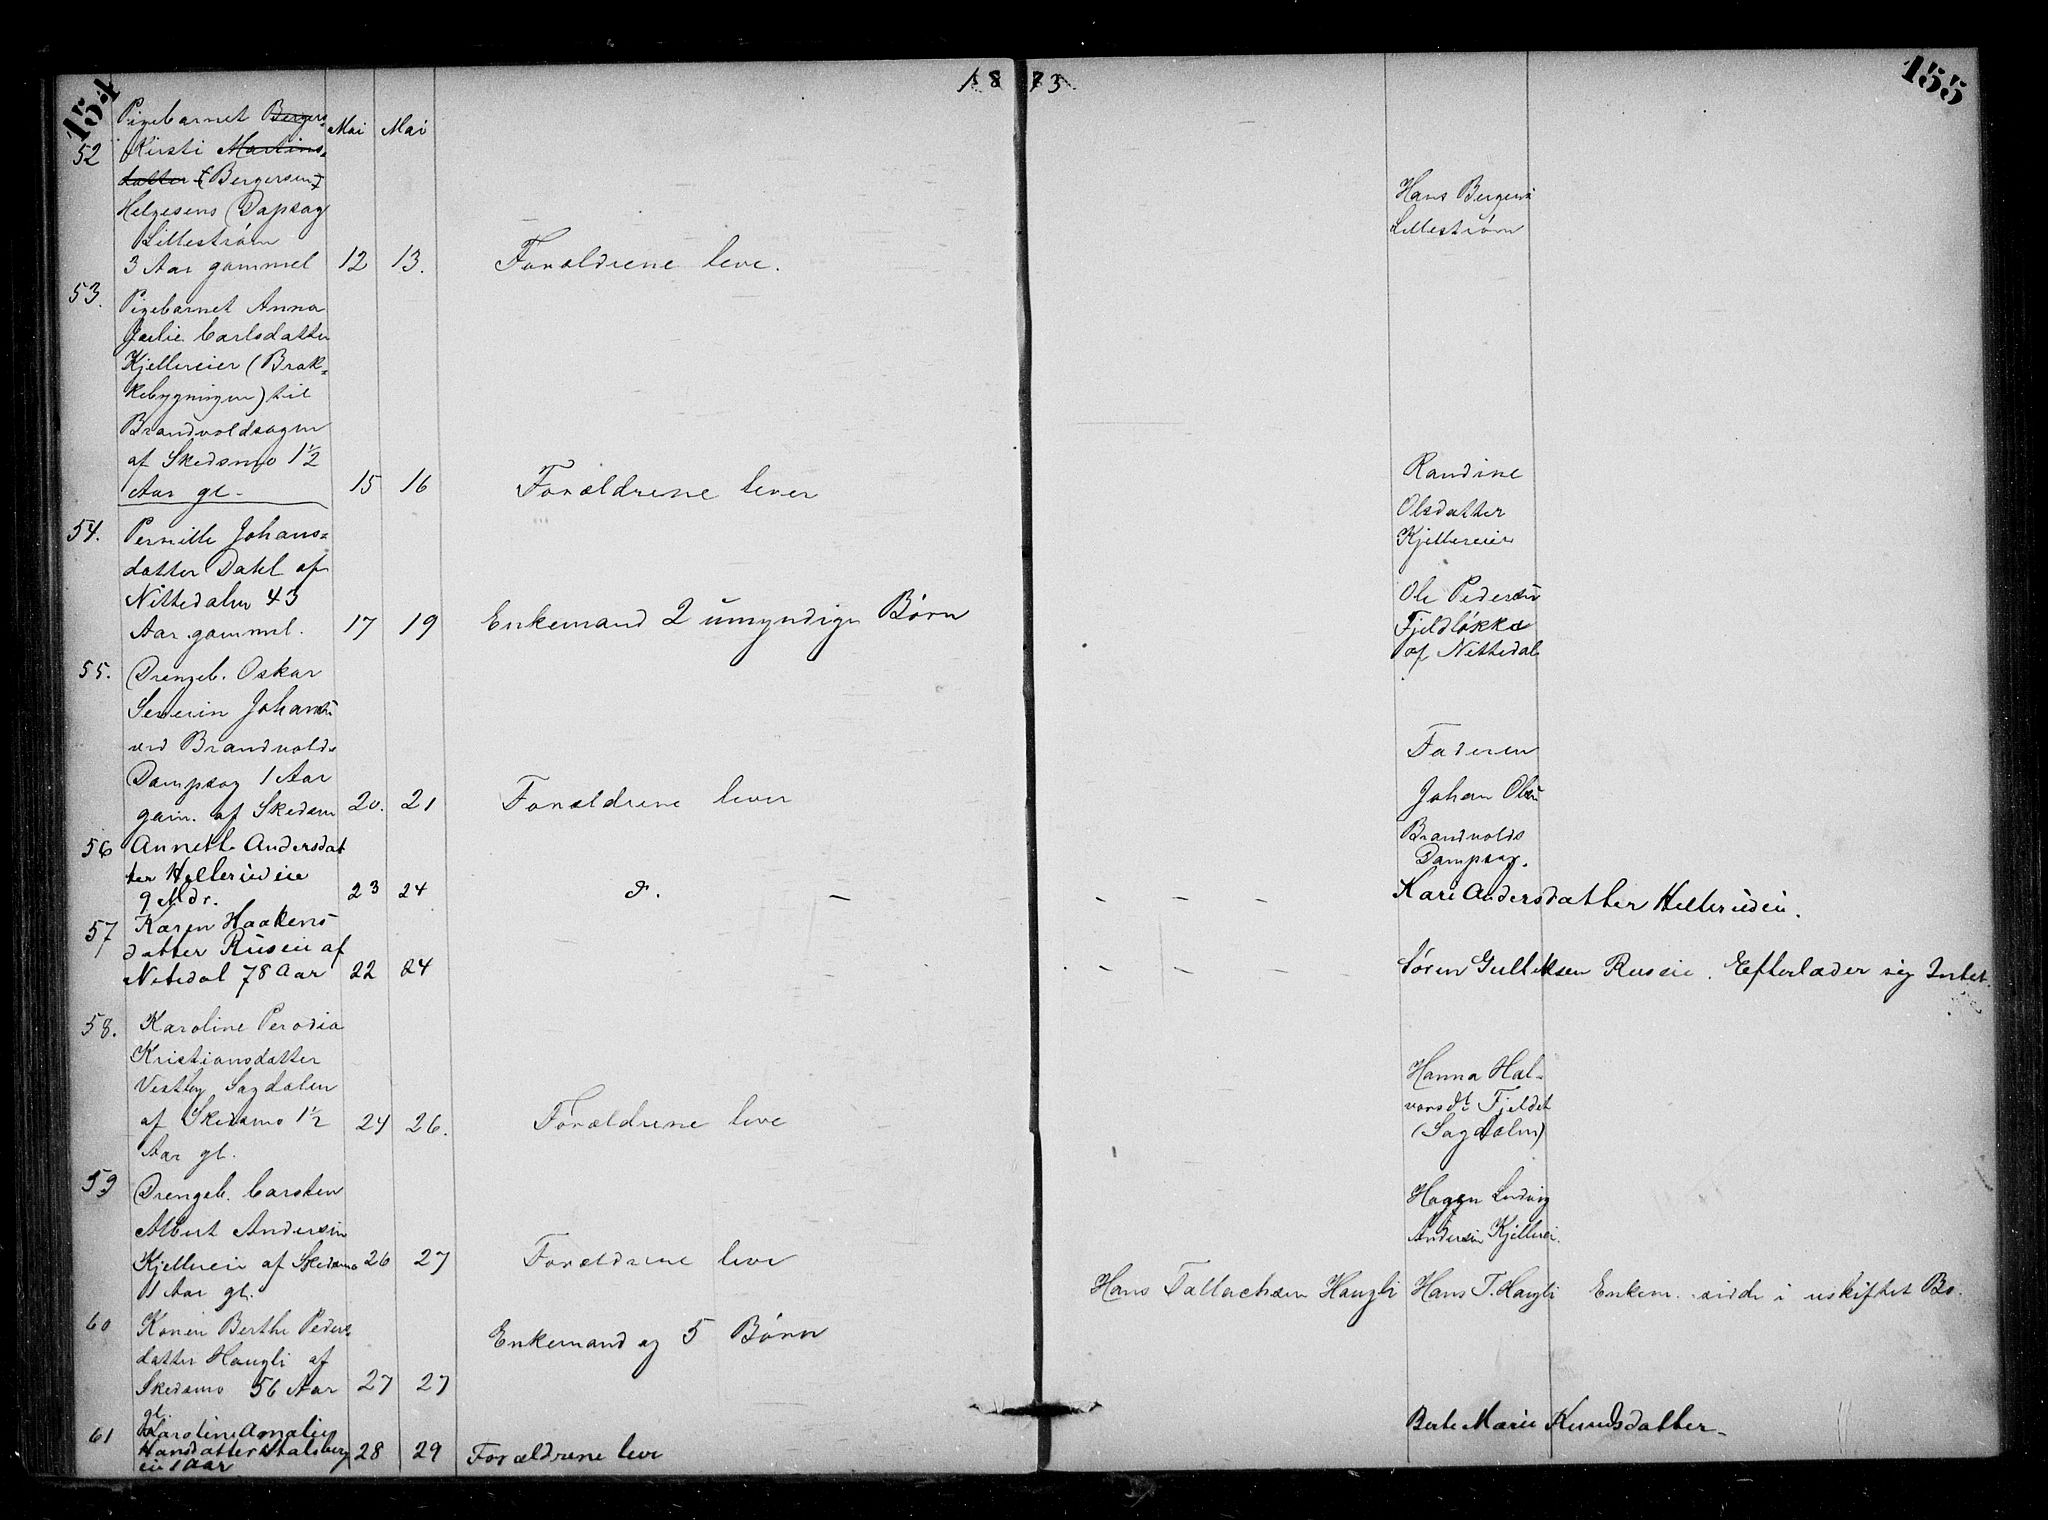 154
1873.
155
Pigebarnet Bergers
Mai Mai
52 Kirsti Martins-
datter (Bergersen)
Helgesens (Dapsag
Lillestrøm
3 Aar gammel 12 13. Forældrene leve.
Hans Bergers
Lillestrøm
53. Pigebarnet Anna
Julie Carlsdatter
Kjellereier (Brak-
kebygningen) til
Brandvoldsagen
af Skedsmo 1½
Aar gl. 15 16 Forældrene lever
Randine
Olsdatter
Kjellereier
54. Pernille Johans-
datter Dahl af
Nittedalen 43
Aar gammel. 17 19 Enkemand 2 umyndige Børn
Ole Pedersen
Fjeldløkka
af Nittedal
55. Drengeb. Oskar
Severin Johansen
ved Brandvolds
Dampsag 1 Aar
gam. af Skedsm 20. 21 Forældrene lever
Faderen
Johan Olsen
Brandvolds
Dampsag.
56 Annette Andersdat
ter Hellerudeie
9 Mdr. 23 24 d. — - - - Kari Andersdatter Hellerudeie.
57 Karen Haakens
datter Ruseie af
Nitedal 78 Aar 22 24 - - - Søren Gulliksen Ruseie. Efterlader sig Intet.
58. Karoline Perodia
Kristiansdatter
Vestby Sagdalen
af Skedsmo 1½ 24 26. Forældrene leve
Aar gl.
Hanna Hal-
vorsdt. Fjeldet
(Sagdalen)
59 Drengeb. Carsten
Albert Andersen
Kjellereie af Skedsmo 26 27 Forældrene leve
1 Aar gl.
Hagen Ludvig
Andersen Kjellerei.
60 Konen Berthe Peders-
datter Haugli af
Skedsmo 56 Aar 27 27
gl.
Enkemand og 5 Børn
Hans Tallachsen Haugli Hans T. Haugli Enkem. sidde i uskiftet Bo.
61 Karoline Amalie
Hansdatter Stalsberg
eie 1 Aar 28 29 Forældrene leve
Berte Marie Knudsdatter